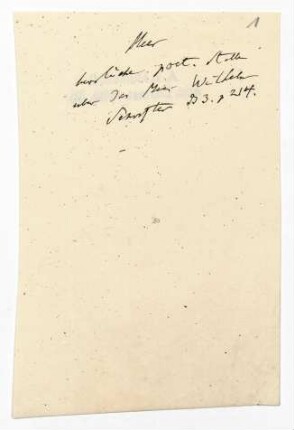 1
Meer
herrliche poet. Stelle
über das Meer Wilhelm
Schriften B 3. p 214.